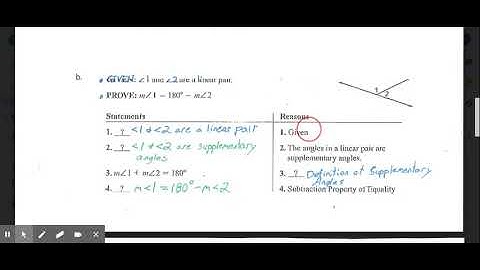 b.
GIVEN: ∠1 and ∠2 are a linear pair.
PROVE: m∠1 = 180° − m∠2
1 2
Statements
Reasons
1. ? <1 & <2 are a linear pair
1. Given
2. ? <1 & <2 are supplementary
angles
2. The angles in a linear pair are
supplementary angles.
3. m∠1 + m∠2 = 180°
3. ? Definition of Supplementary
Angles
4. ? m<1 = 180° - m<2
4. Subtraction Property of Equality